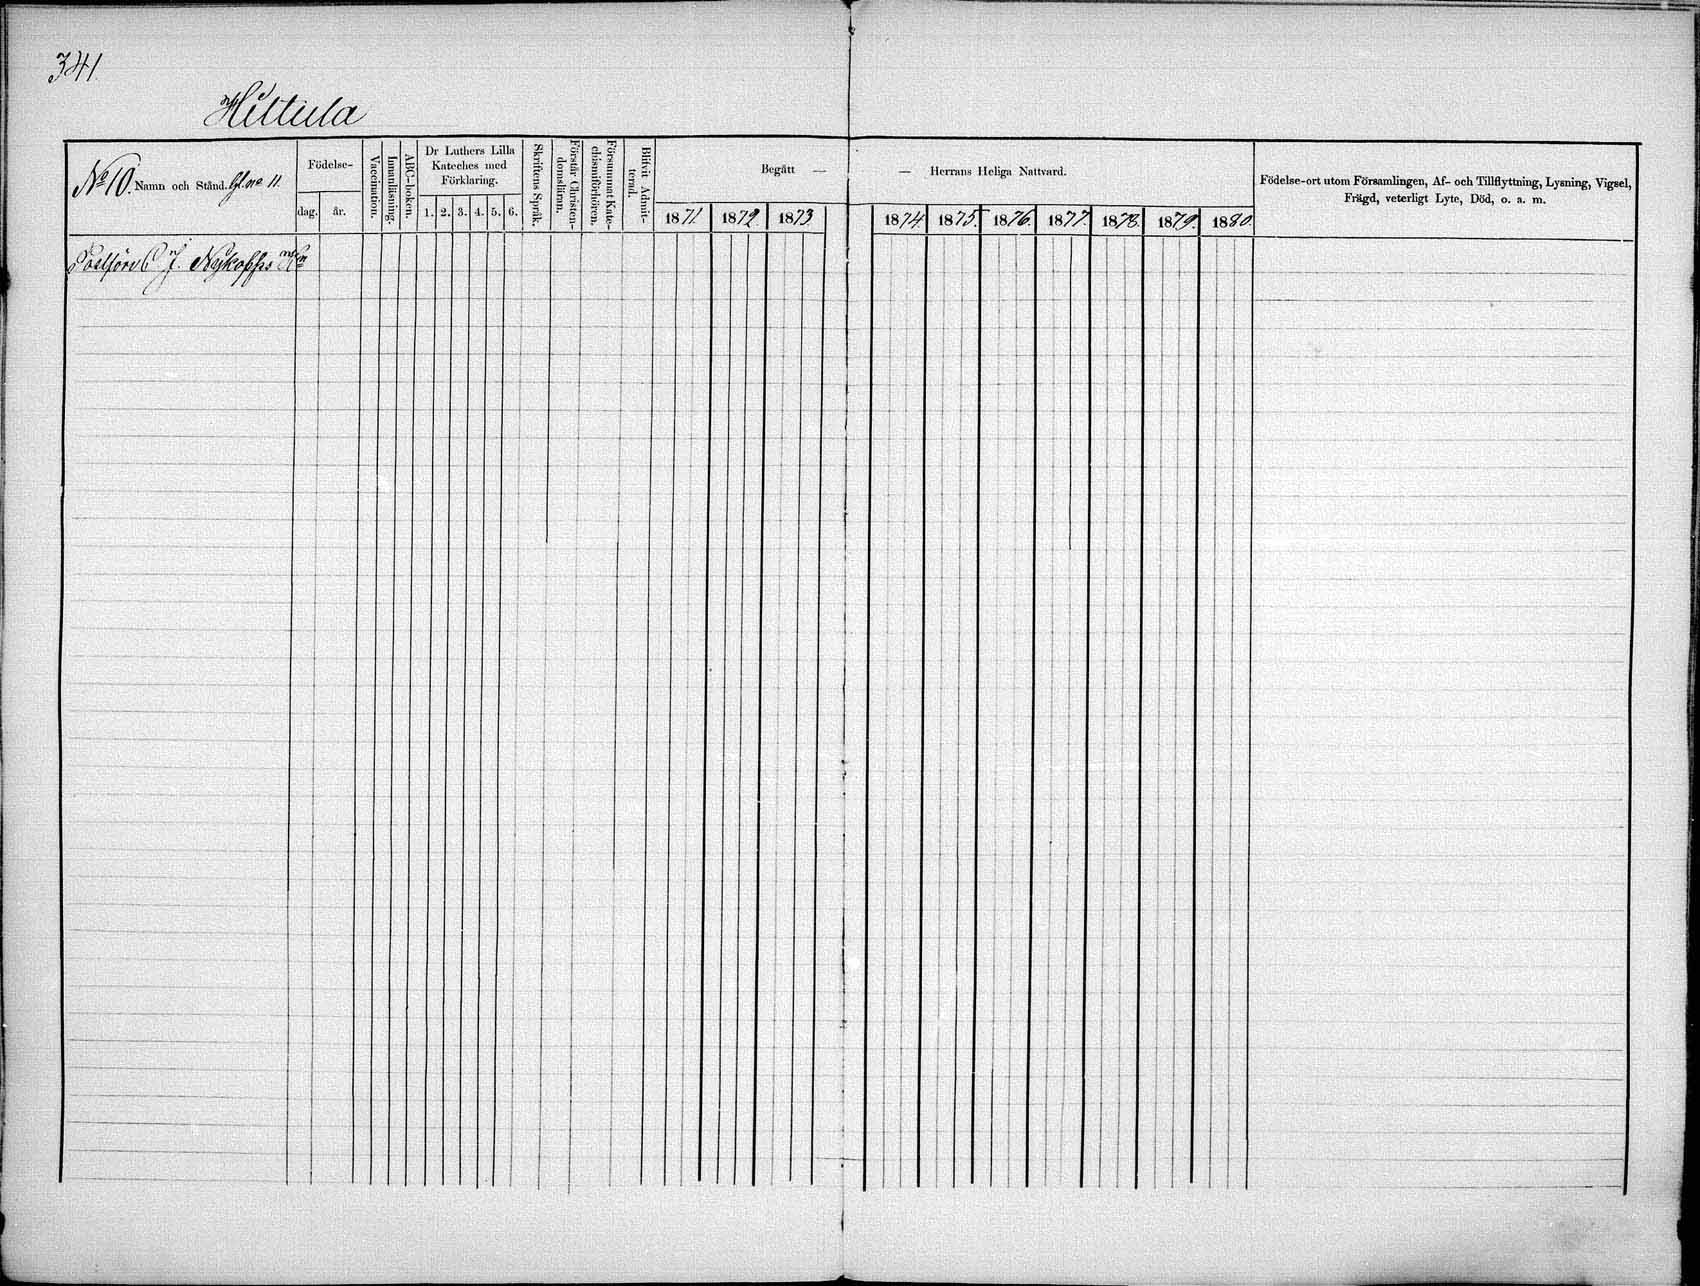 341.
Hiltula
No 10. Namn och Stånd. Gl. no 11.
Födelse-
dag. år.
Vaccination.
Innanläsning.
ABC-boken.
Dr Luthers Lilla
Kateches med
Förklaring.
1. 2. 3. 4. 5. 6.
Skriftens Språk.
Förstår Christen-
domsläran.
Försummat Kate-
chismiförhören.
Blifvit Admit-
terad.
Begått —
1871. 1872. 1873.
— Herrans Heliga Nattvard.
1874. 1875. 1876. 1877. 1878. 1879. 1880.
Födelse-ort utom Församlingen, Af- och Tillflyttning, Lysning, Vigsel,
Frägd, veterligt Lyte, Död, o. a. m.
J. Nykopps